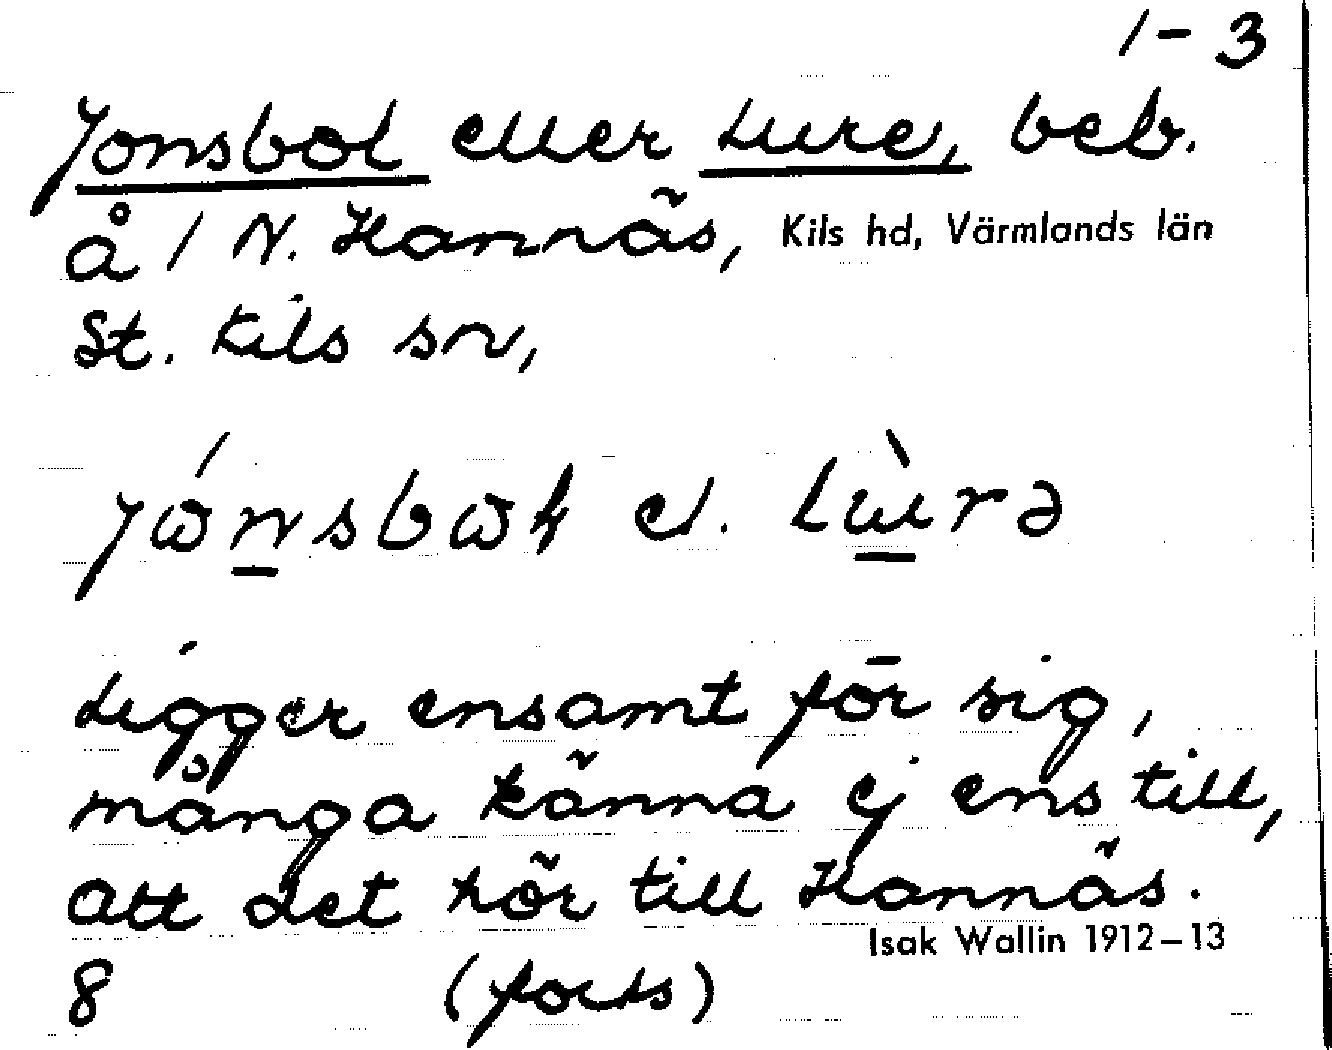 1-3
Jonsbol eller Lure, beb.
å 1 N. Hannäs, Kils hd, Värmlands län
St. Kils sn,
el.
Ligger ensamt för sig,
många känna ej ens till,
att det hör till Hannäs.
Isak Wallin 1912-13
8 (forts)